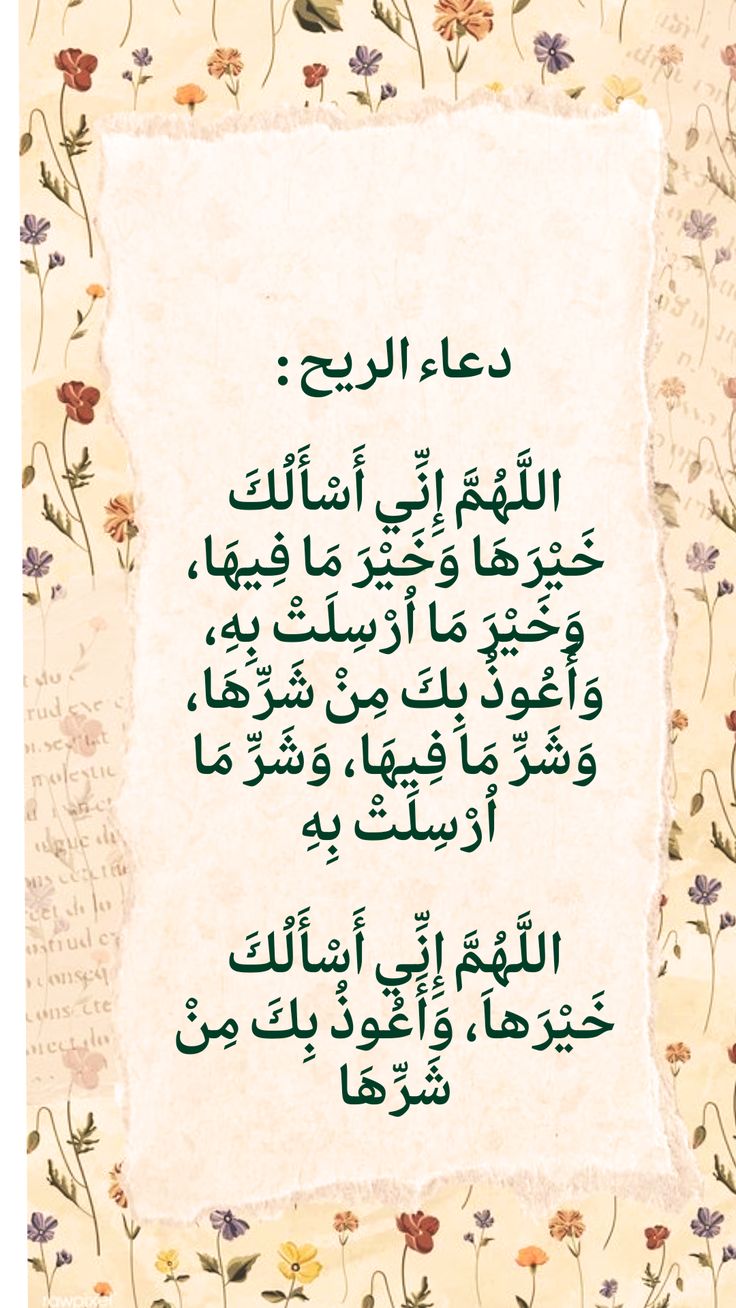 دعاء الريح :
اللَّهُمَّ إِنِّي أَسْأَلُكَ
خَيْرَهَا وَخَيْرَ مَا فِيهَا،
وَخَيْرَ مَا اُرْسِلَتْ بِهِ،
وَأَعُوذُ بِكَ مِنْ شَرِّهَا،
وَشَرِّ مَا فِيهَا، وَشَرِّ مَا
اُرْسِلَتْ بِهِ
اللَّهُمَّ إِنِّي أَسْأَلُكَ
خَيْرَهاَ، وَأَعُوذُ بِكَ مِنْ
شَرِّهَا
rawpixel